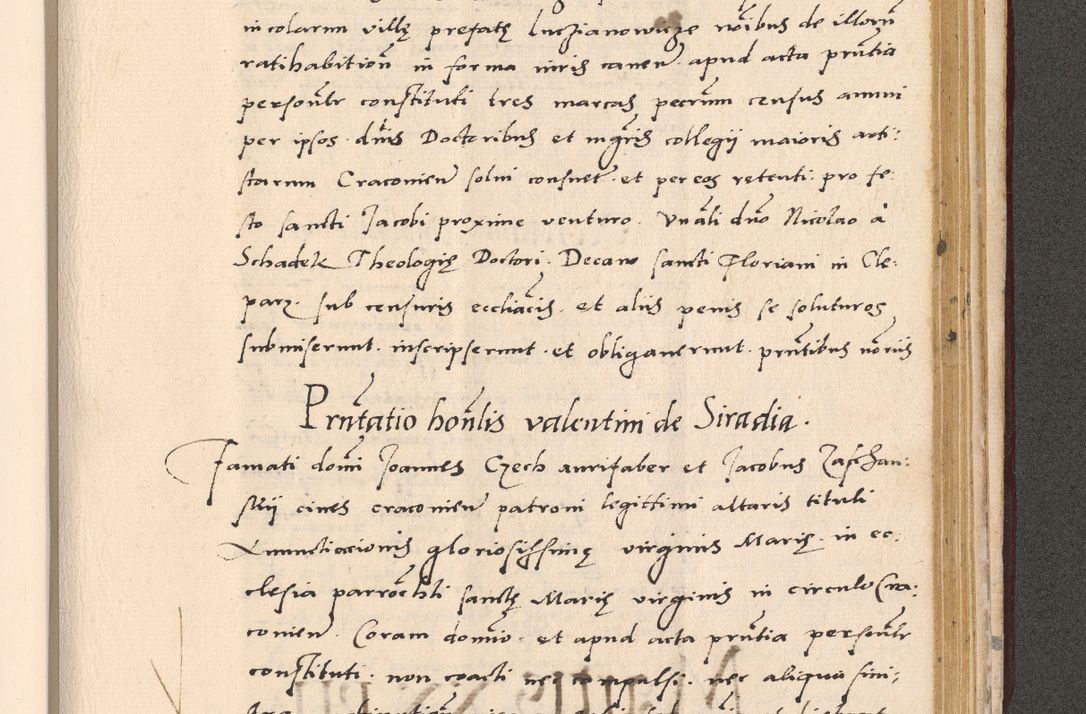 incolarum villę prefatę Luczianowicze nõibus de illorũ
ratihabitioñ in forma iuris canoñ apud acta prñtia
personłr constituti tres marcas pecũm census annui
per ipsos dñis Doctoribus et mgris collegij maioris arti:
starum Cracovieñ solui consuet et per eos retenti pro fe
sto sancti Jacobi proxime venturo. Vnãli dño Nicolao à
Schadek Theologię Doctori. Decano sancti Floriani in Cle:
parz. sub censuris eccliãcis. et aliis penis se soluturos
submiserunt. inscripserunt. et obligauerunt. prñtibus nõriis
Prñtatio honłlis valentini de Siradia.
Famati domĩ Joannes Czech aurifaber et Jacobus
ciues cracouieñ patroni legittimi altaris tituli
Annuncciacionis gloriosissimę virginis Marię. in ec:
clesia parrochłi sanctę Marię virginis in circulo Cra:
couieñ. Coram domĩo. et apud acta prñtia personłr
constituti. non coacti nec compulsi. nec aliqua sini: